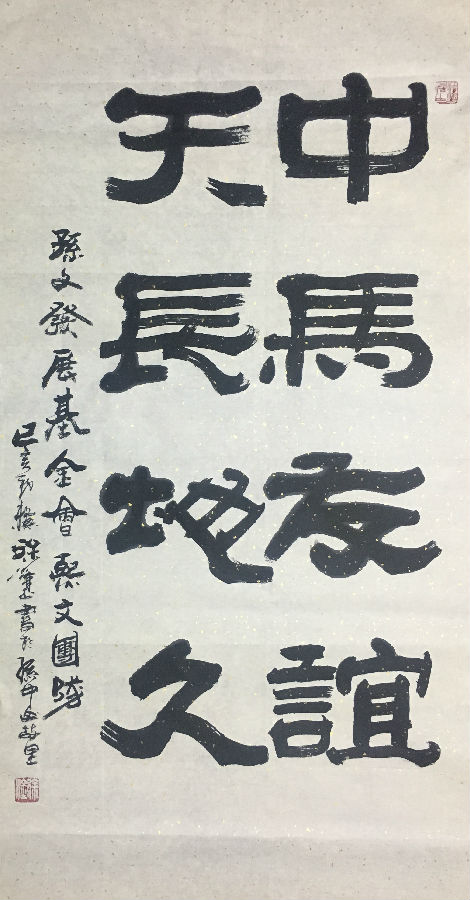 中馬友誼
天長地久
孫文發展基金會熙文團隊
己亥秋 書於孫中山故里